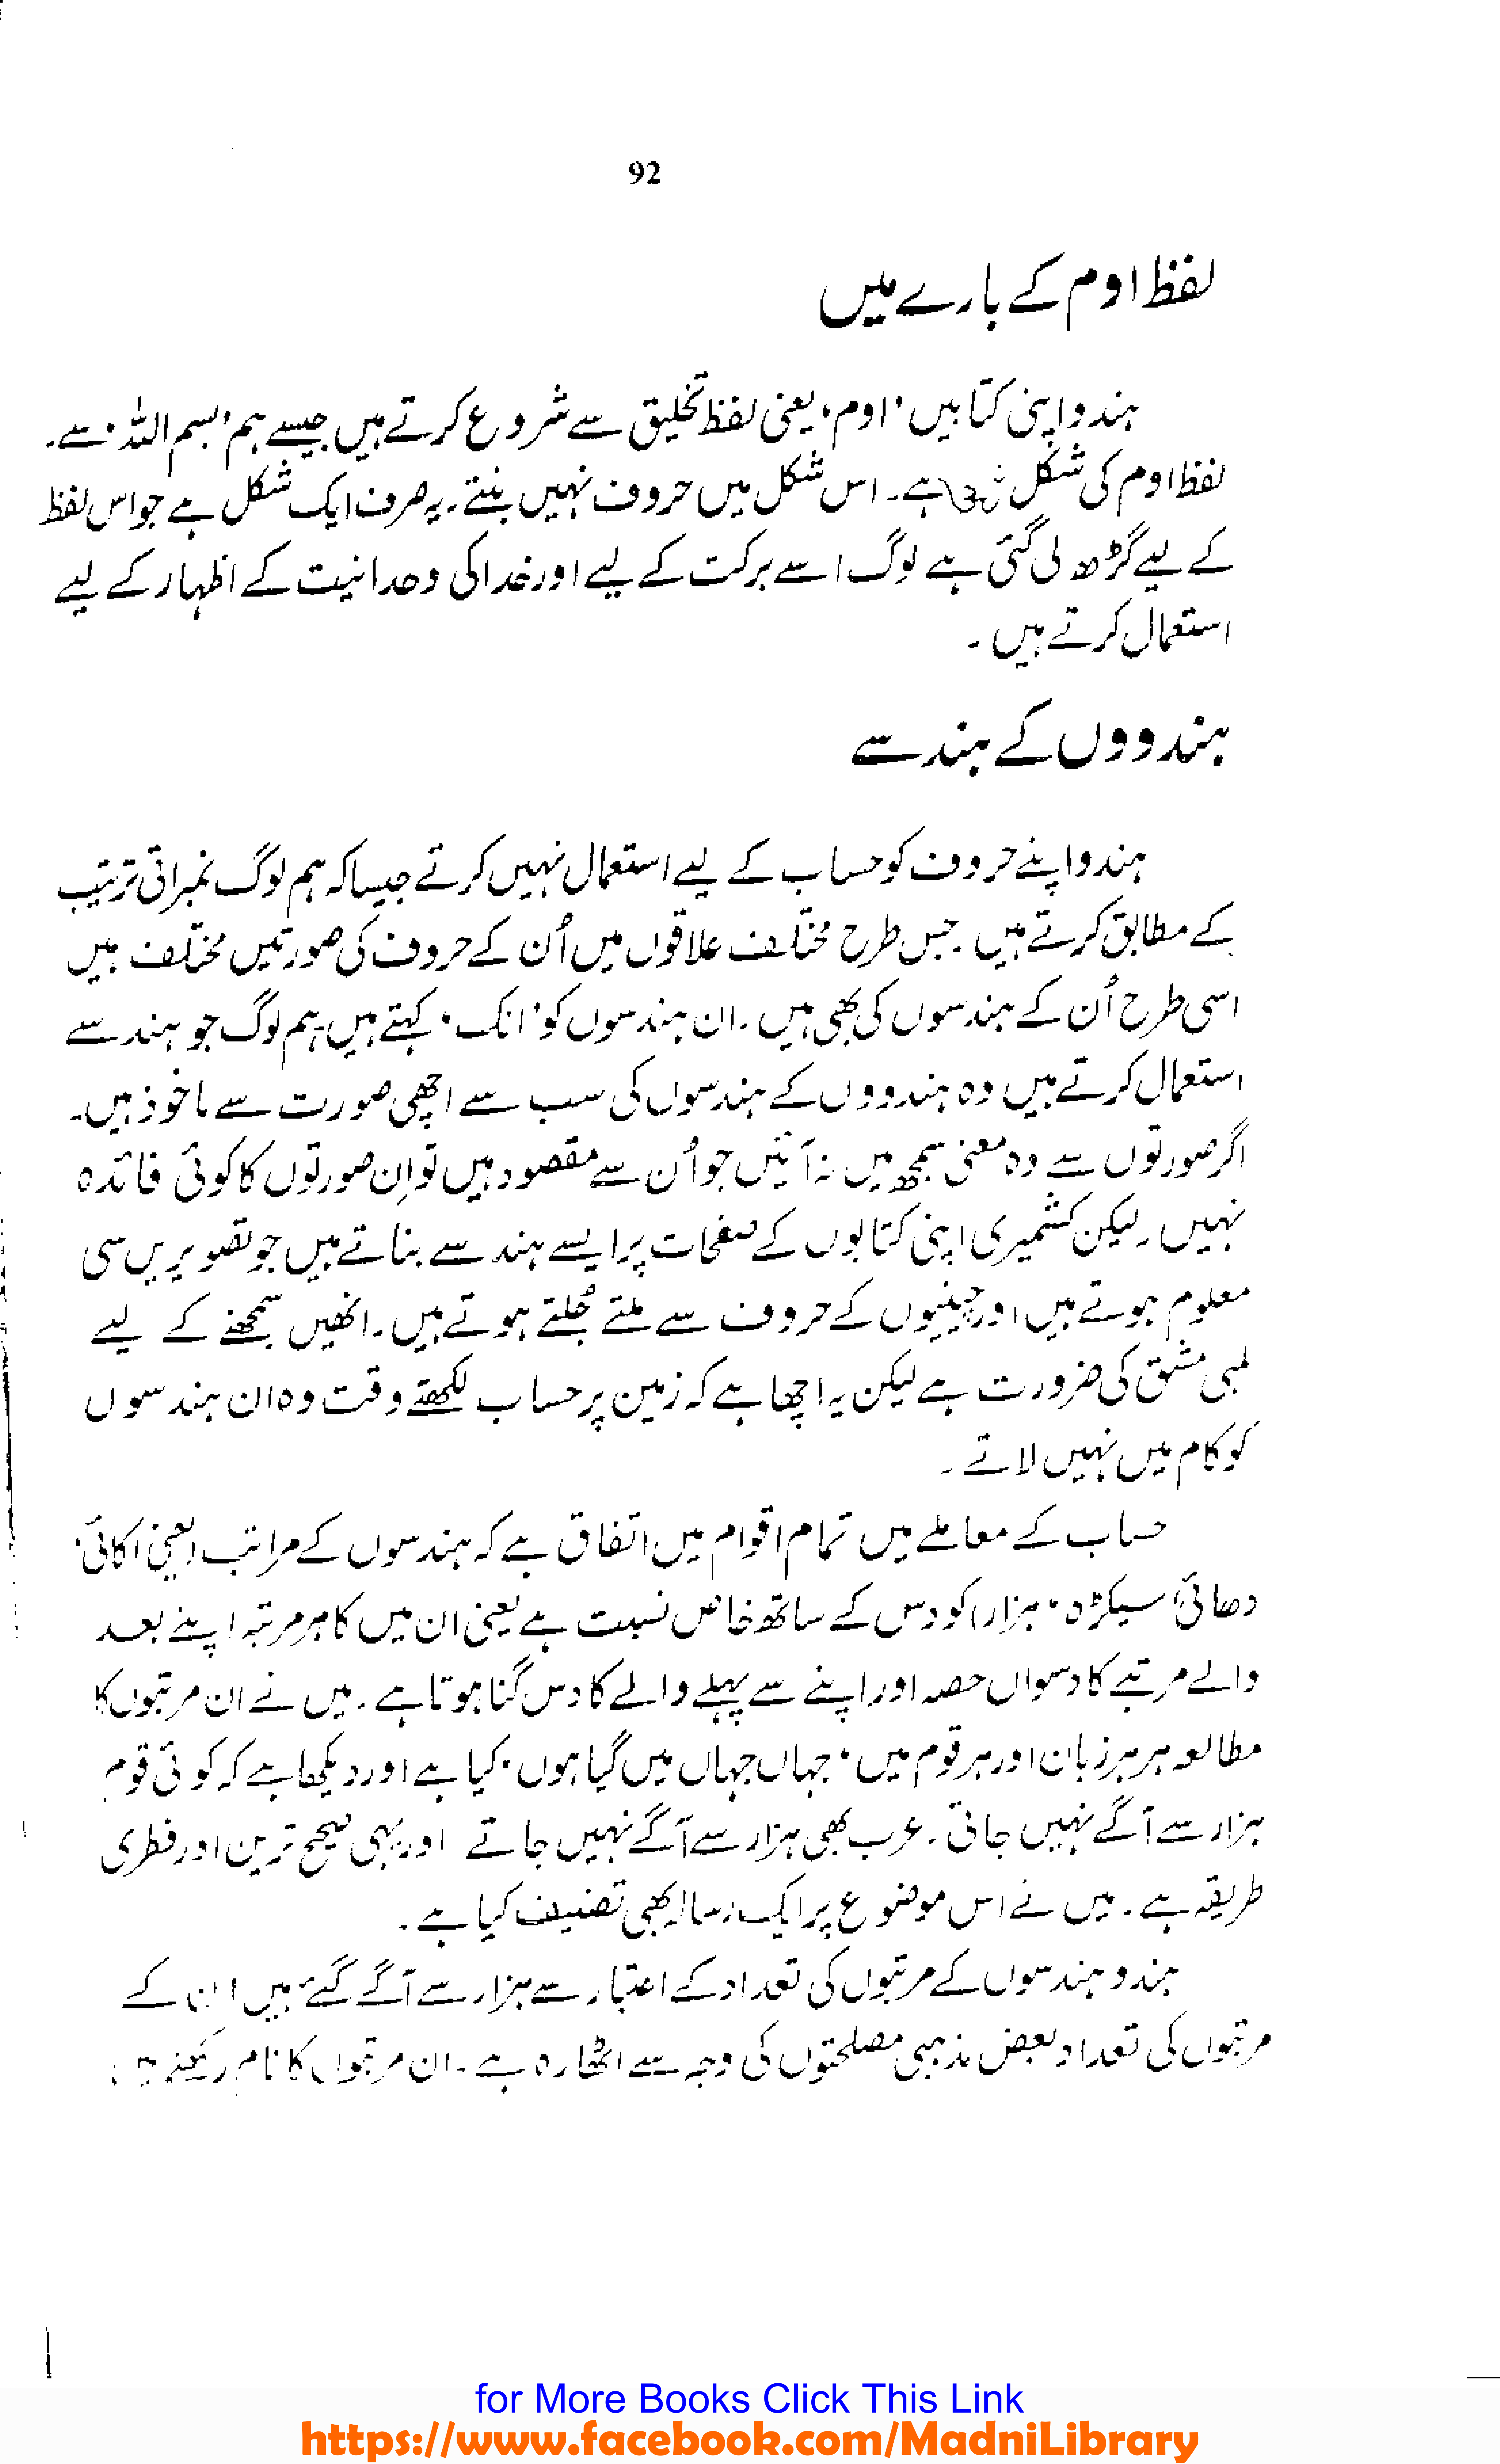 92
لفظ اوم کے بارے میں
ہندو اپنی کتابیں 'اوم' یعنی لفظ تخلیق سے شروع کرتے ہیں جیسے ہم 'بسم اللہ' سے۔
لفظ اوم کی شکل ہے۔ اس شکل میں حروف نہیں بنتے۔ یہ صرف ایک شکل ہے جو اس لفظ
کے لیے گڑھ لی گئی ہے لوگ اسے برکت کے لیے اور خدا کی وحدانیت کے اظہار کے لیے
استعمال کرتے ہیں ۔
ہندووں کے ہندسے
ہندو اپنے حروف کو حساب کے لیے استعمال نہیں کرتے جیسا کہ ہم لوگ نمبراتی ترتیب
کے مطابق کرتے ہیں ۔ جس طرح مختلف علاقوں میں اُن کے حروف کی صورتیں مختلف ہیں
اسی طرح اُن کے ہندسوں کی بھی ہیں ۔ ان ہندسوں کو 'انک' کہتے ہیں ہم لوگ جو ہندسے
استعمال کرتے ہیں وہ ہندووں کے ہندسوں کی سب سے اچھی صورت سے ماخوذ ہیں۔
اگر صورتوں سے وہ معنی سمجھ میں نہ آئیں جو اُن سے مقصود ہیں تو اِن صورتوں کا کوئی فائدہ
نہیں ۔ لیکن کشمیری اپنی کتابوں کے صفحات پر ایسے ہندسے بناتے ہیں جو تصویریں سی
معلوم ہوتے ہیں اور چینیوں کے حروف سے ملتے جُلتے ہوتے ہیں ۔ انھیں سمجھنے کے لیے
لمبی مشق کی ضرورت ہے لیکن یہ اچھا ہے کہ زمین پر حساب لکھتے وقت وہ ان ہندسوں
کو کام میں نہیں لاتے ۔
حساب کے معاملے میں تمام اقوام میں اتفاق ہے کہ ہندسوں کے مراتب (یعنی اکائی'
دھائی' سیکڑہ' ہزار) کو دس کے ساتھ خاص نسبت ہے یعنی ان میں کا ہر مرتبہ اپنے بعد
والے مرتبے کا دسواں حصہ اور اپنے سے پہلے والے کا دس گنا ہوتا ہے ۔ میں نے ان مرتبوں کا
مطالعہ ہر ہر زبان اور ہر قوم میں' جہاں جہاں میں گیا ہوں' کیا ہے اور دیکھا ہے کہ کوئی قوم
ہزار سے آگے نہیں جاتی ۔ عرب بھی ہزار سے آگے نہیں جاتے اور یہی صحیح ترین اور فطری
طریقہ ہے ۔ میں نے اس موضوع پر ایک رسالہ بھی تصنیف کیا ہے ۔
ہندو ہندسوں کے مرتبوں کی تعداد کے اعتبار سے ہزار سے آگے گئے ہیں ان کے
مرتبوں کی تعداد بعض مذہبی مصلحتوں کی وجہ سے اٹھارہ ہے ۔ ان مرتبوں کا نام رکھنے میں
for More Books Click This Link
https://www.facebook.com/MadniLibrary